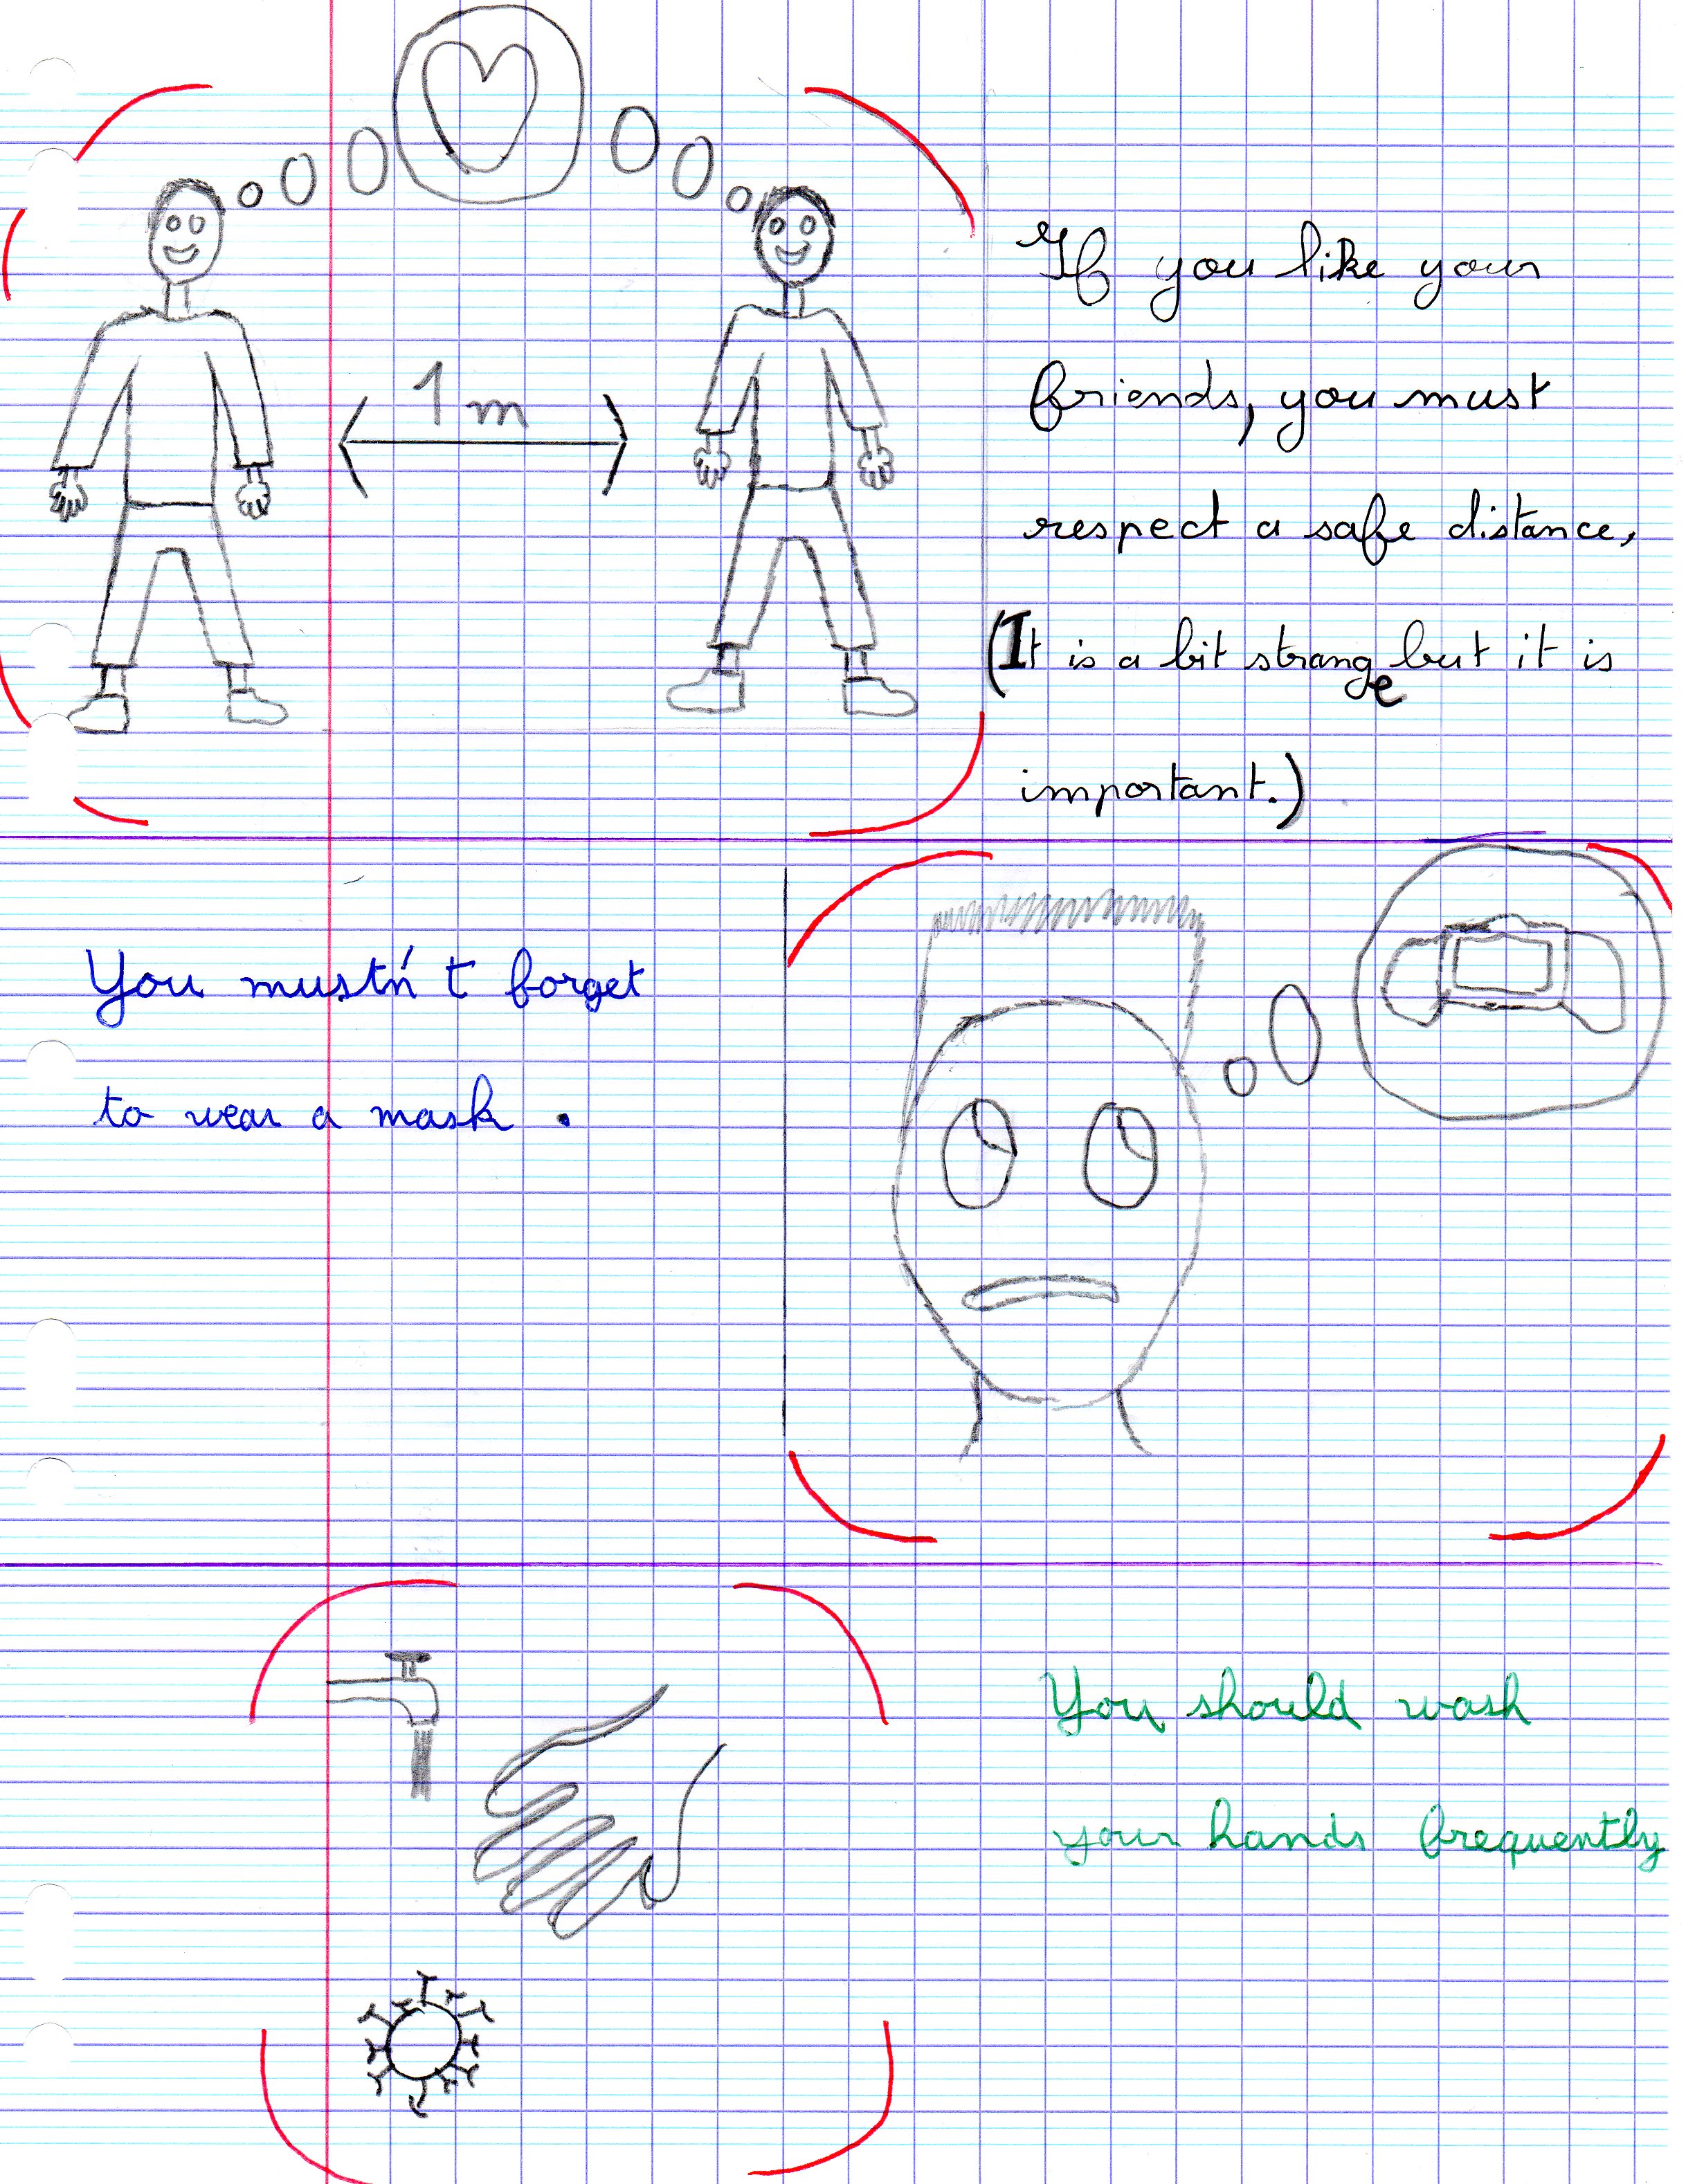 1 m
If you like your
friends, you must
respect a safe distance,
(It is a bit strange but it is
important.)
You mustn't forget
to wear a mask .
You should wash
your hands frequently